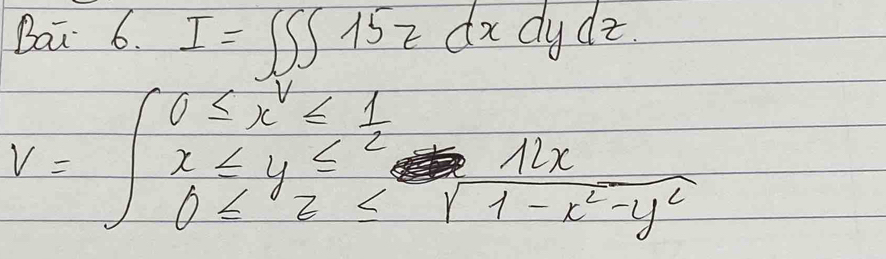 Bài 6. I = ∭ 15z dx dy dz.
V
0 ≤ x ≤ 1/2
V = { x ≤ y ≤ 12x
0 ≤ z ≤ √(1 - x² - y²)